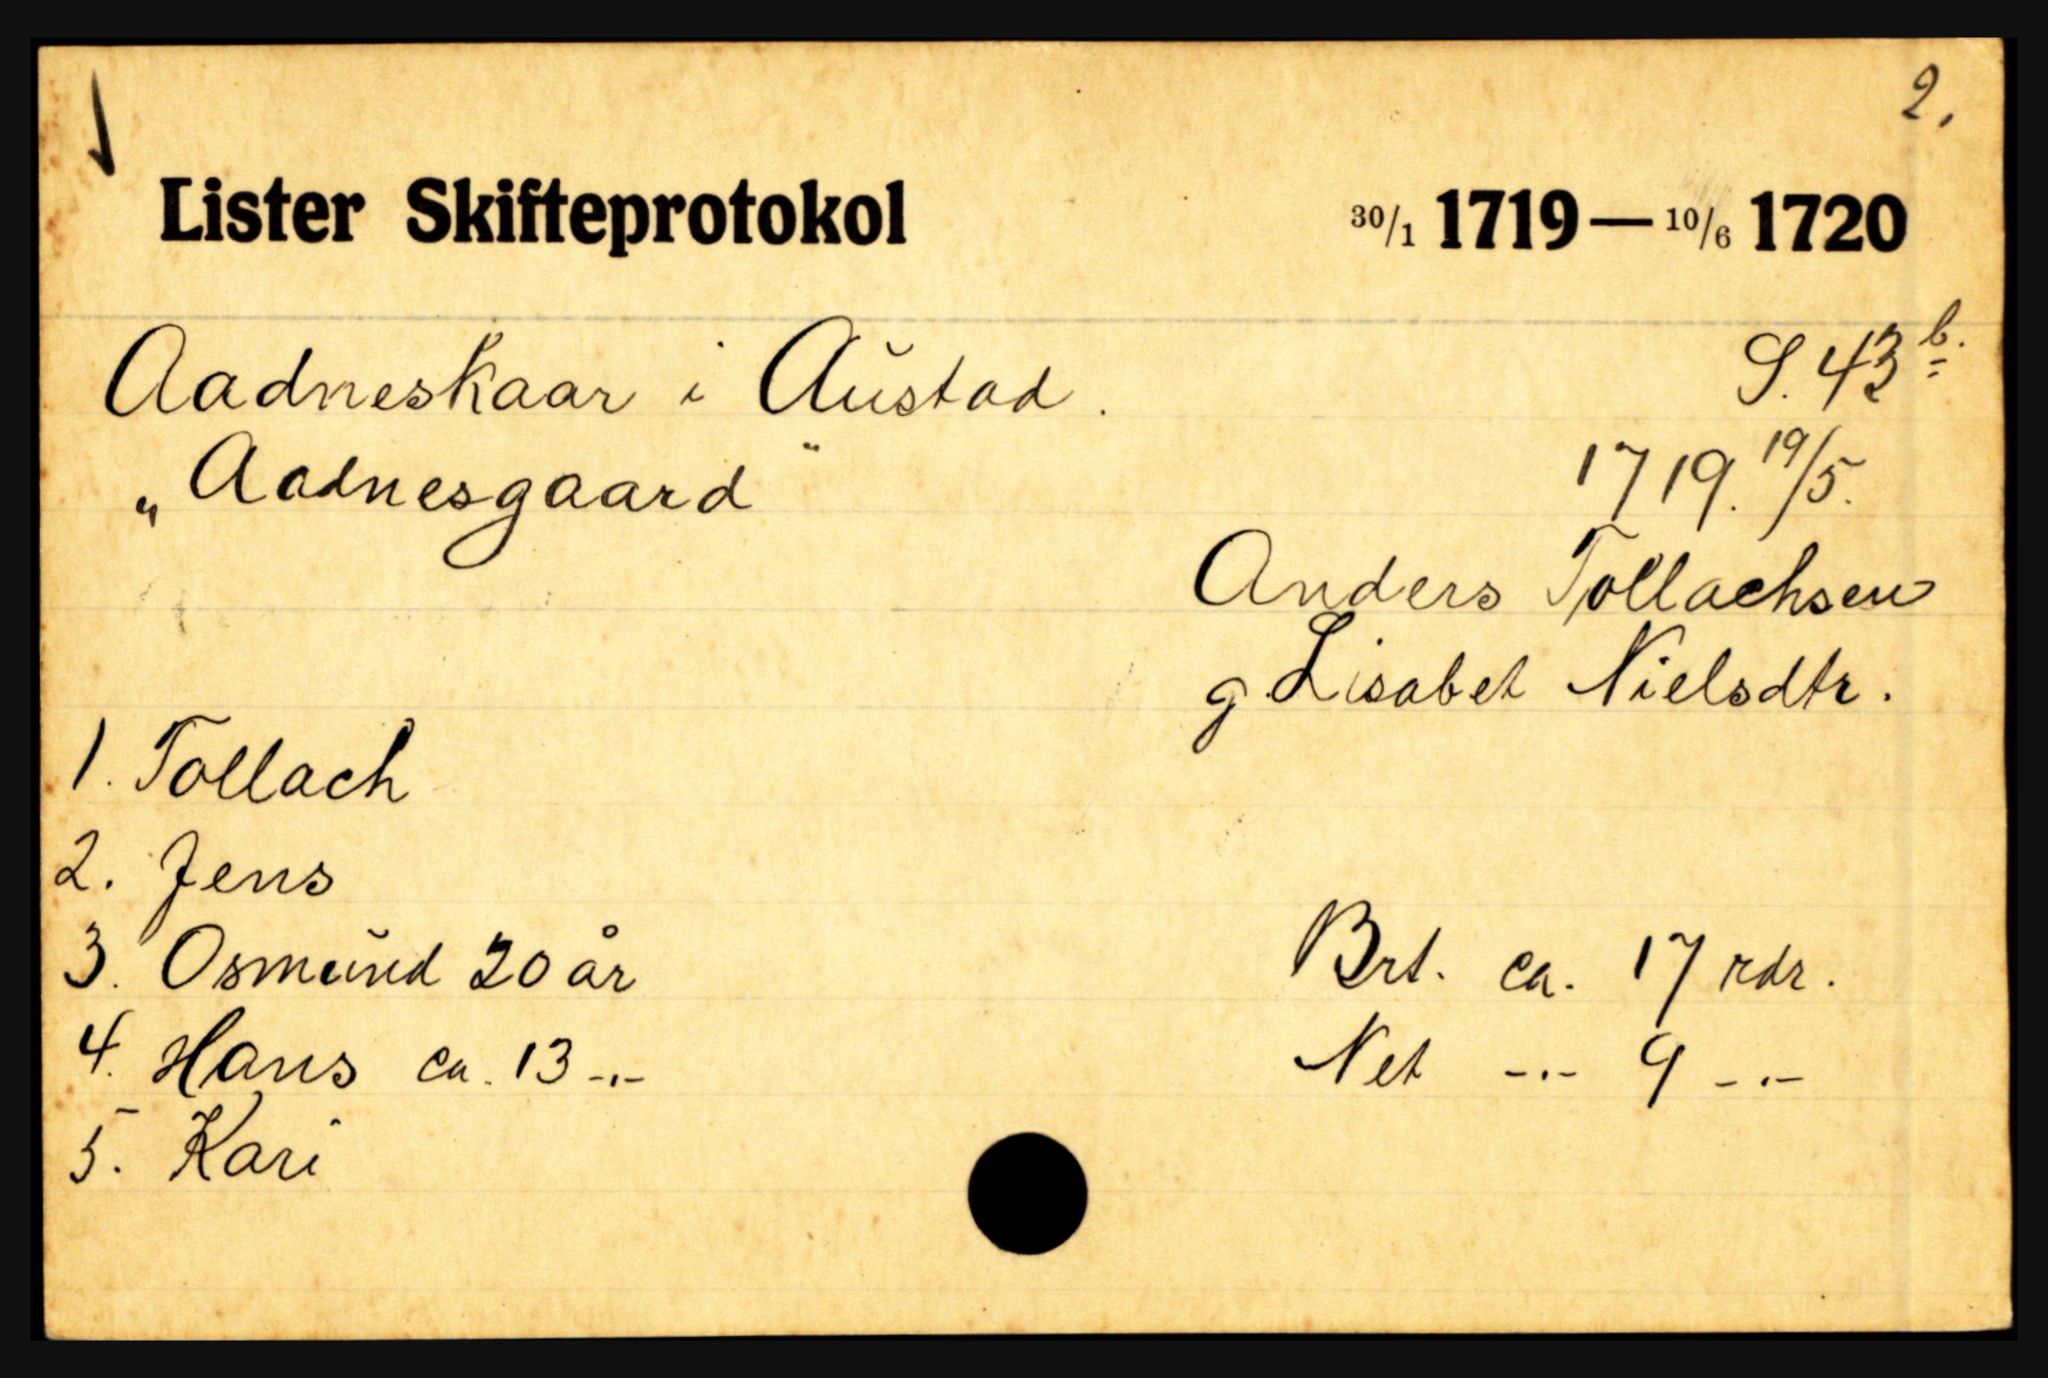 2.
Lister Skifteprotokol 30/1 1719 — 10/6 1720
Aadneskaar i Austad. S. 43 b.
„Aadnesgaard" 1719. 19/5.
Anders Tollachsen
g. Lisabet Nielsdtr.
1. Tollach
2. Jens
3. Osmund 20 år Brt. ca. 17 rdr.
4. Hans ca. 13 -"- Net -"- 9 -"-
5. Kari